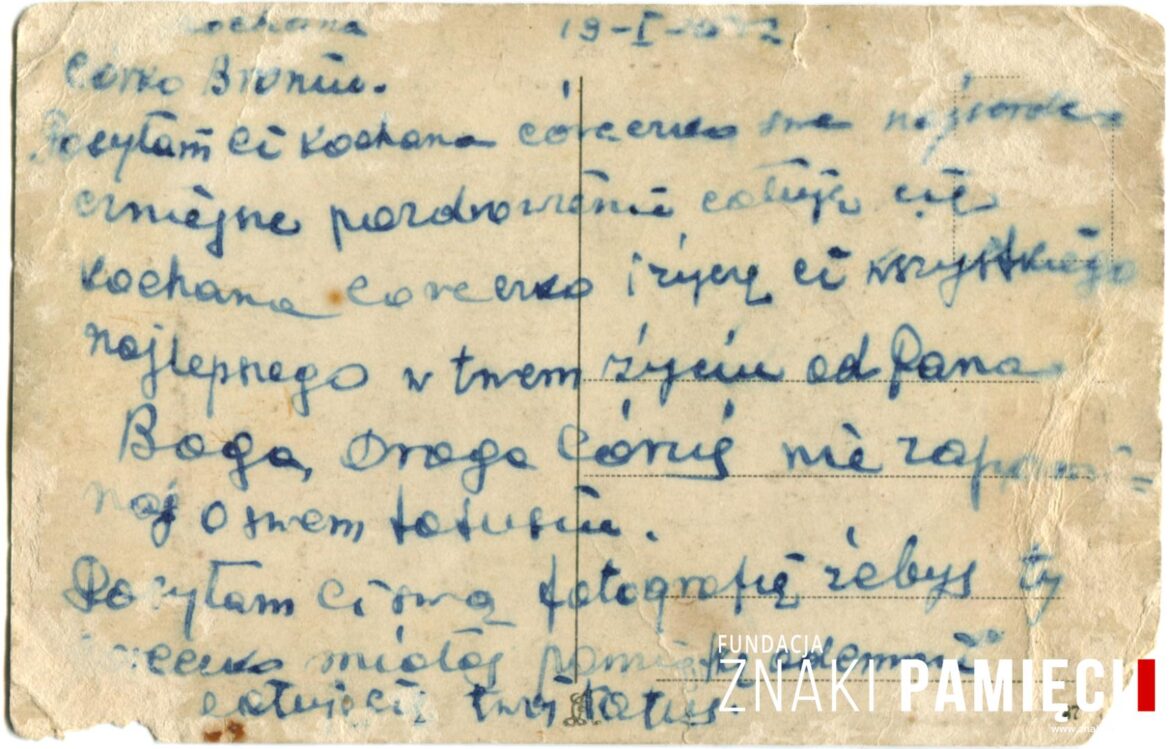 Kochana 19-I-
Córko Broniu.
Posyłam Ci Kochana córeczko swe najserde
czniejsze pozdrowienie całuję cię
Kochana Coreczko i życzę ci wszystkiego
najlepszego w twem życiu od Pana
Boga, Droga Córuś nie zapomi=
naj o swem tatusiu.
Posyłam Ci swą fotografię żebys ty
coreczko miałaś pamiątkę odemnie
całuję cię twój Tatuś
FUNDACJA
ZNAKI PAMIĘCI